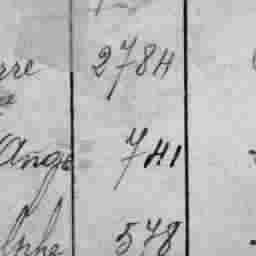 rre 2784
Ange 741
lphe 578